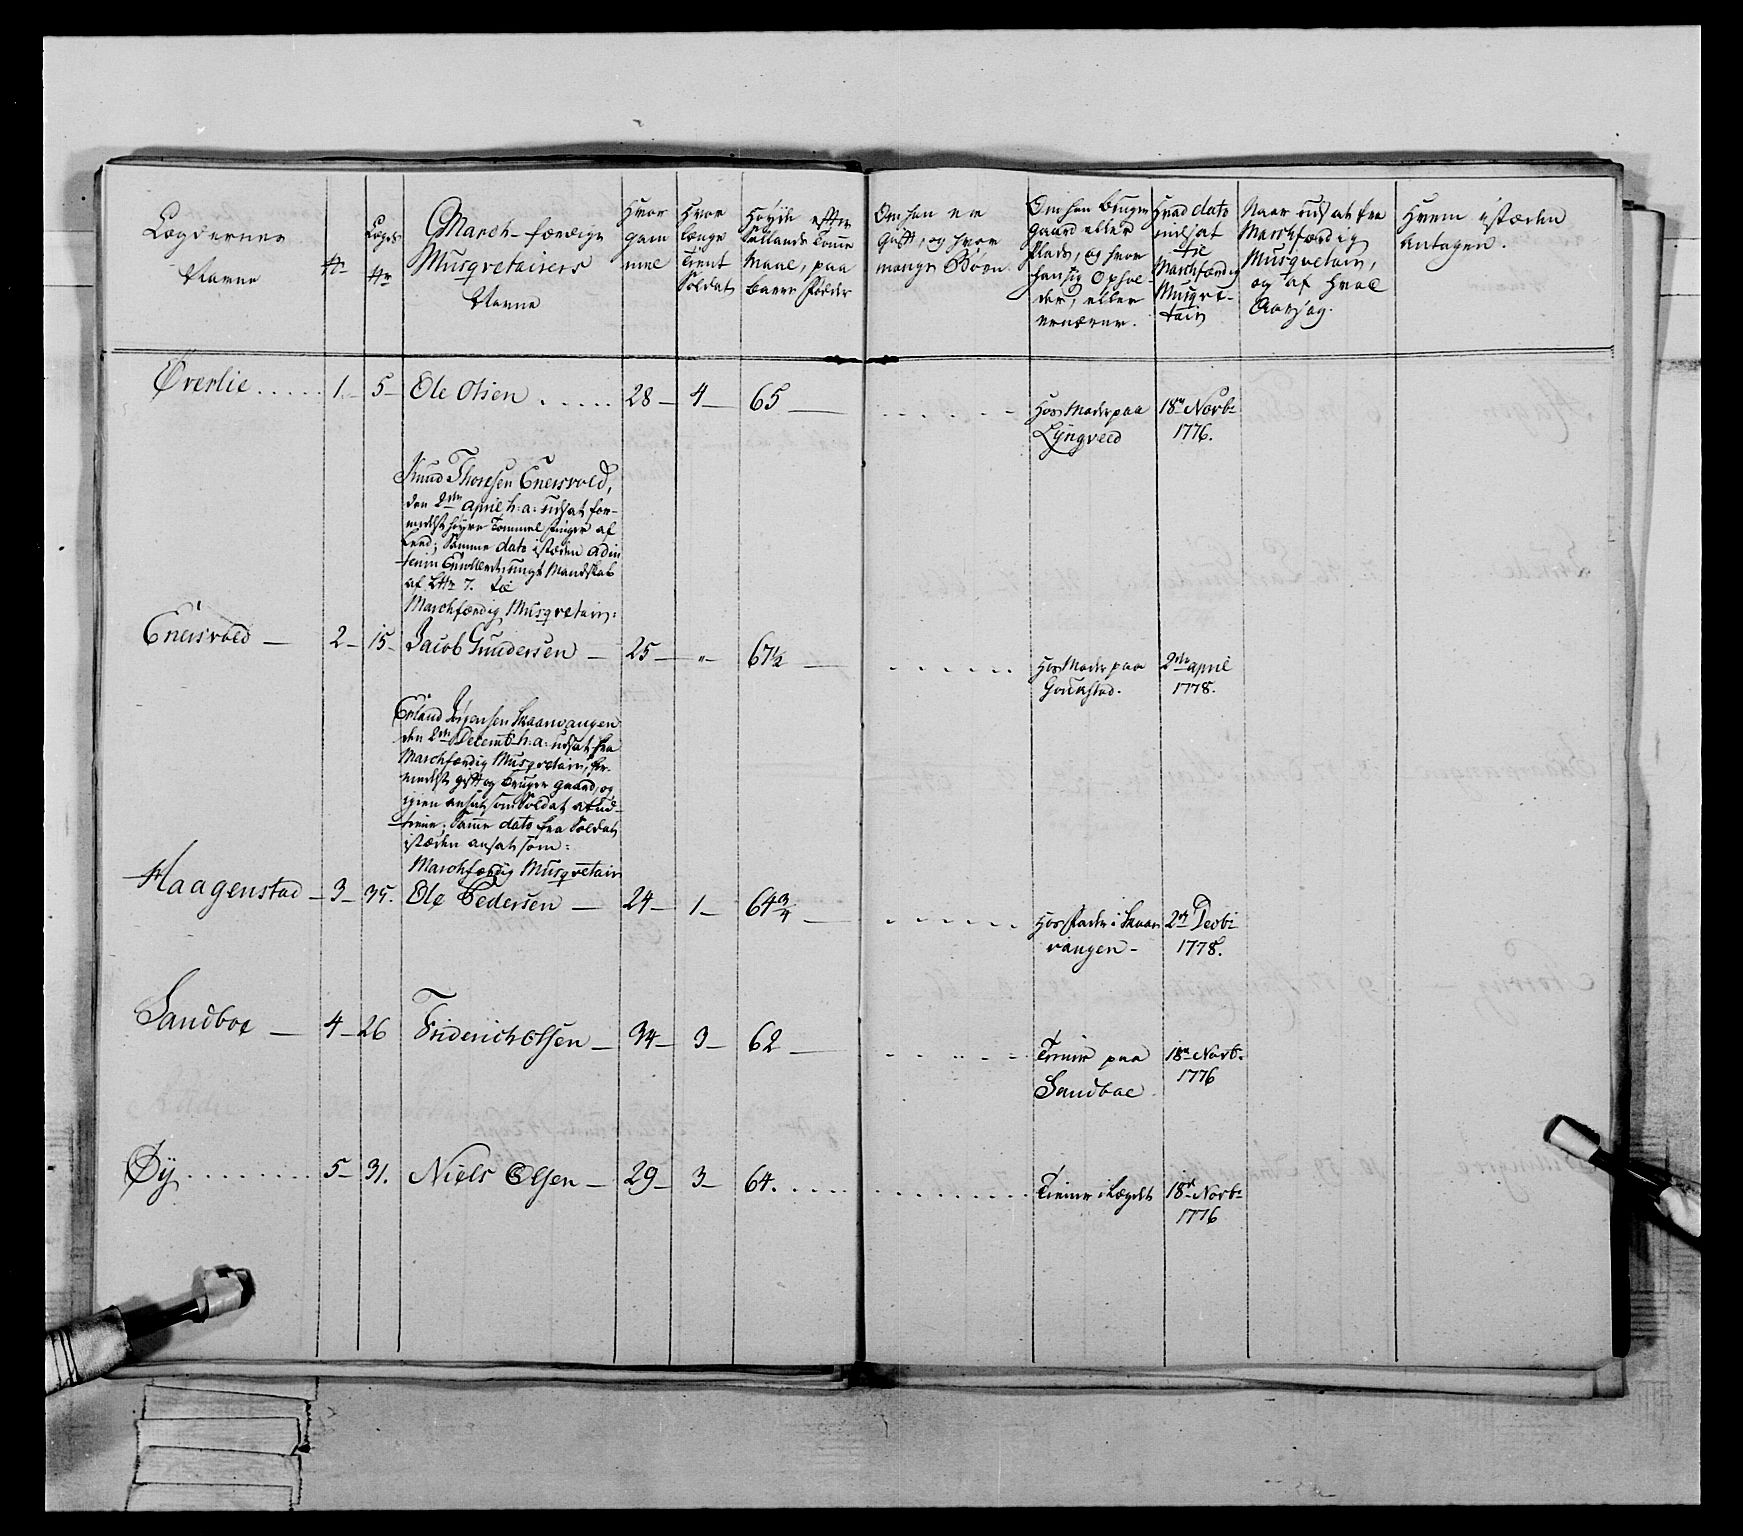 Lægdernes
Navne
No
Lægds
No
March-færdige
Musqvetairers
Navne
Hvor
gam
mel
Hvor
længe
tient
Soldat
Høyde efter
Siællands Tomme
Maal, paa
barre Fødder
Om han er
Gift, og hvor
mange Børn
Om han bruger
gaard eller
Plads, og hvor
han sig Ophol-
der, eller
ernærer.
Hvad dato
indsat
til
Marchfærdig
Musqve-
tair
Naar udsat fra
Marchfærdig
Musqvetair,
og af hvad
Aarsag.
Hvem istæden
Antagen.
Øverlie ..... 1. 5 Ole Olsen ..... 28 4 65
Hos Moder paa
Lyngveed
18de Novbr
1776.
Knud Thoresen Enersvold,
den 2den april h: a: udsat for-
medelst høyre Tommel finger af
Leed; Samme dato istæden
Enrolleret ungt Mandskab
af No 7. til
Marchfærdig Musqvetair:
Enersvold 2 15 Jacob Gundersen 25 " 67½
Hos Moder paa
2den april
1778.
Erland Jørgensen Skaarvangen
den 2den Decemb: h: a: udsat fra
Marchfærdig Musqvetair, for-
medelst gift og bruger gaard, og
igien ansat som Soldat at ud-
tiene; Samme dato fra Soldat
istæden ansat som:
Marchfærdig Musqvetair
Haagenstad 3 35. Ole Pedersen 24 1 64¾
Hos Fader i Skaar
vangen
2den Decbr
1778.
Sandboe 4 26 Friderich Olsen 34 3 62
Tiener paa
Sandboe
18de Novb:
1776
Øy ........ 5 31. Niels Olsen 29 3 64.
Tiener i Lægdet
18de Novbr
1776